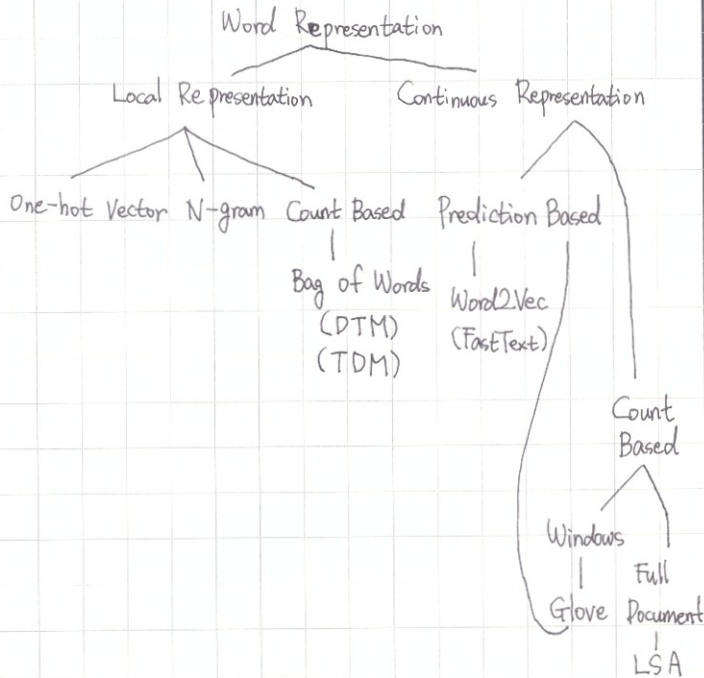 Word Representation
Local Representation Continuous Representation
One-hot Vector N-gram Count Based Prediction Based
Bag of Words
(DTM)
(TDM)
Word2Vec
(FastText)
Count
Based
Windows
Glove
Full
Document
LSA